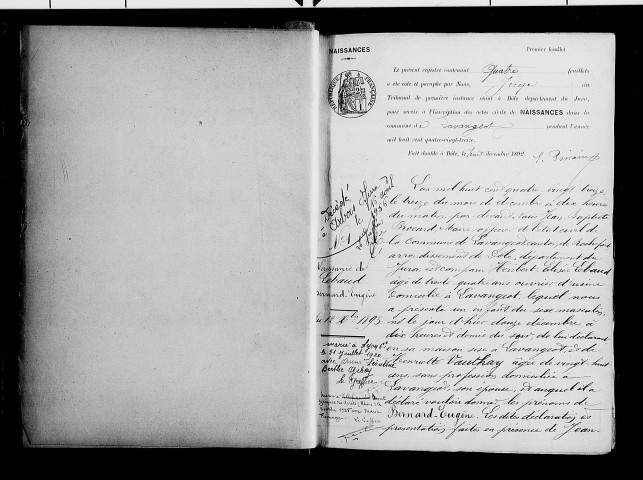 NAISSANCES
Premier feuillet
Le présent registre contenant Quatre feuillets
a été coté et paraphé par Nous, Juge au
Tribunal de première instance séant à Dole département du Jura,
pour servir à l'inscription des actes civils de NAISSANCES dans la
commune de Lavangeot pendant l'année
mil huit cent quatre-vingt-treize.
Fait double à Dole, le décembre 1892
RÉPUBLIQUE FRANÇAISE
L'an mil huit cent quatre vingt treize
le treize du mois de décembre à dix heures
du matin, par devant nous Jean Baptiste
Brocard, Maire officier de l'état civil de
la Commune de Lavangeot canton de Rochefort
arrondissement de Dole, département du
Jura, est comparu Héribert Elisée Lebaud
âgé de trente quatre ans ouvrier d'usine
domicilié à Lavangeot, lequel nous
a présenté un enfant du sexe masculin
né le jour d'hier douze décembre à
dix heures et demie du soir, de lui déclarant
en sa maison sise à Lavangeot, et de
Henriette Vauthay âgée de vingt huit
ans, sans profession domiciliée à
Lavangeot, son épouse, et auquel il a
déclaré vouloir donner les prénoms de
Bernard-Eugène. Les dites déclaration et
présentation faites en présence de Jean-
Décédé
à
N° 1
Naissance de
Lebaud
Bernard-Eugène
12 Xbre 1893
marié à Lyon
le 31 juillet 1920
avec
Berthe
le Greffier